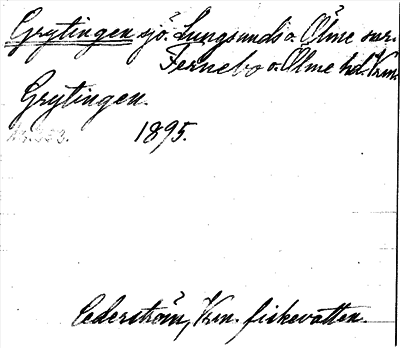 Grytingen sjö Lungsunds o. Ölme snr.
Fernebo o. Ölme hd. Vrm.
Grytingen.
1895.
Cederström, Vrm. fiskevatten.